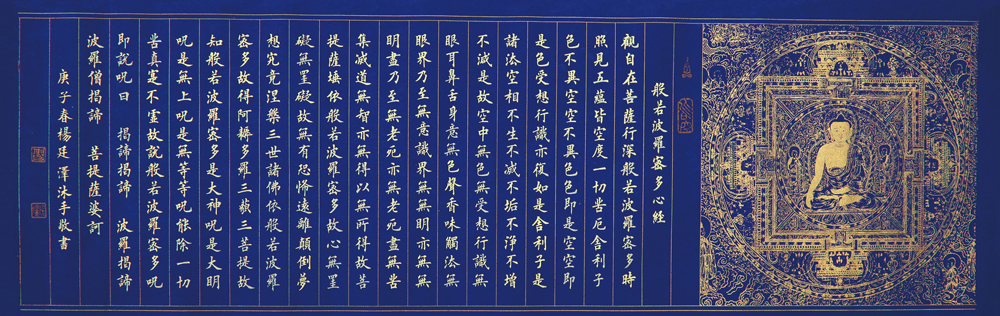 般若波羅蜜多心經
觀自在菩薩行深般若波羅蜜多時
照見五蘊皆空度一切苦厄舍利子
色不異空空不異色色即是空空即
是色受想行識亦復如是舍利子是
諸法空相不生不滅不垢不淨不增
不減是故空中無色無受想行識無
眼耳鼻舌身意無色聲香味觸法無
眼界乃至無意識界無無明亦無無
明盡乃至無老死亦無老死盡無苦
集滅道無智亦無得以無所得故菩
提薩埵依般若波羅蜜多故心無罣
礙無罣礙故無有恐怖遠離顛倒夢
想究竟涅槃三世諸佛依般若波羅
蜜多故得阿耨多羅三藐三菩提故
知般若波羅蜜多是大神咒是大明
咒是無上咒是無等等咒能除一切
苦真實不虛故說般若波羅蜜多咒
即說咒曰 揭諦揭諦 波羅揭諦
波羅僧揭諦 菩提薩婆訶
庚子春楊廷澤沐手敬書